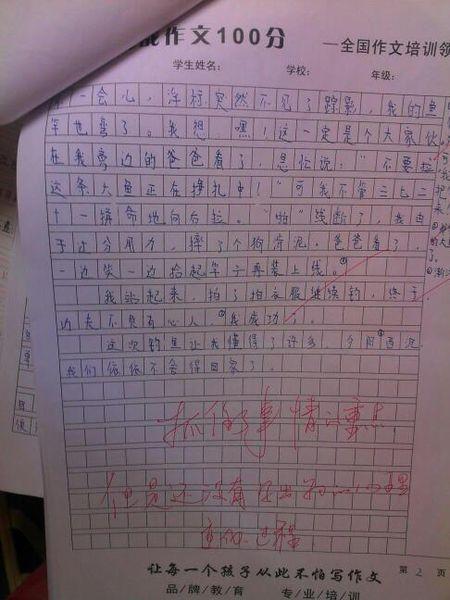 作文100分
—全国作文培训领
学生姓名： 学校： 年级：
一会儿，浮标突然不见了踪影，我的鱼
竿也弯了。我想，嘿！这一定是个大家伙。
在我旁边的爸爸看了，急忙说：“不要拉
这条大鱼正在挣扎中！”可我不管三七二
十一拼命地向后拉。“啪”线断了，我由
于过分用力，摔了个狗啃泥。爸爸看了，
一边笑一边拾起竿子再装上线。
我站起来，拍了拍衣服继续钓，终于，
功夫不负有心人，我成功了。
这次钓鱼让我懂得了许多，夕阳西沉，
我们依依不舍得回家了。
抓住了事情的重点
但是还没有写出
过程
第 2 页
让每一个孩子从此不怕写作文
品/牌/教/育 专/业/培/训